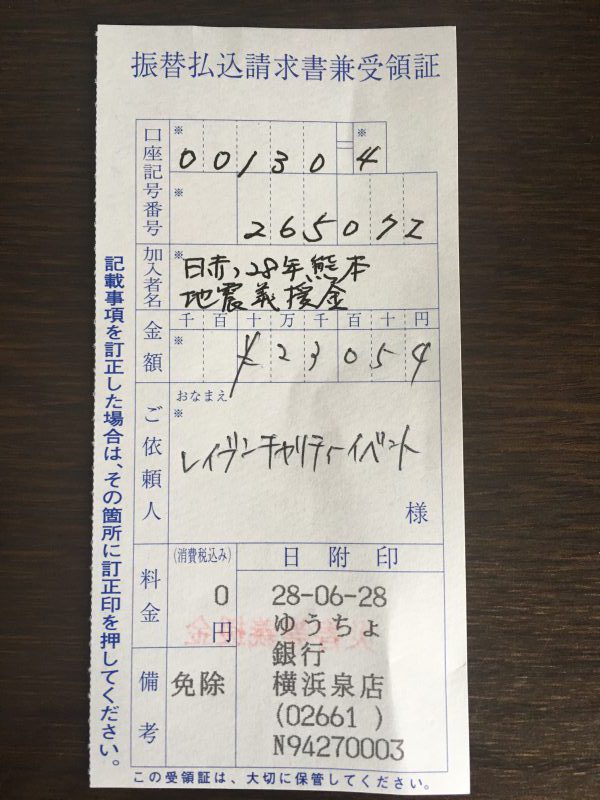 振替払込請求書兼受領証
口座記号番号
※
※
00130 4
※
265072
加入者名
※
日赤、28年熊本
地震義援金
金額
千 百 十 万 千 百 十 円
※
¥23054
ご依頼人
おなまえ
※
レイヴンチャリティーイベント
様
料金
(消費税込み)
0
円
備考
免除
日附印
28-06-28
ゆうちょ
銀行
横浜泉店
(02661 )
N94270003
記載事項を訂正した場合は、その箇所に訂正印を押してください。
この受領証は、大切に保管してください。